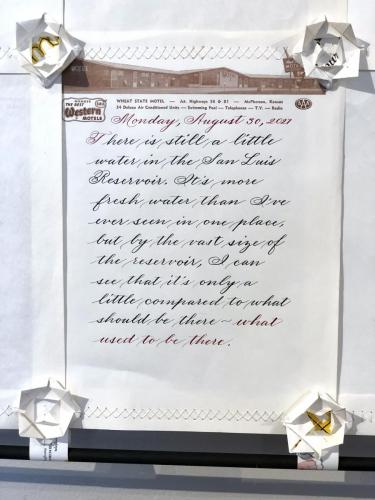 MEMBER
THE BEST
Western
MOTELS
WHEAT STATE MOTEL — Jct. Highways 56 & 81 — McPherson, Kansas
54 Deluxe Air Conditioned Units — Swimming Pool — Telephones — T.V. — Radio
AAA
Monday, August 30, 2021
There is still a little
water in the San Luis
Reservoir. It's more
fresh water than I've
ever seen in one place,
but by the vast size of
the reservoir, I can
see that it's only a
little compared to what
should be there ~ what
used to be there.